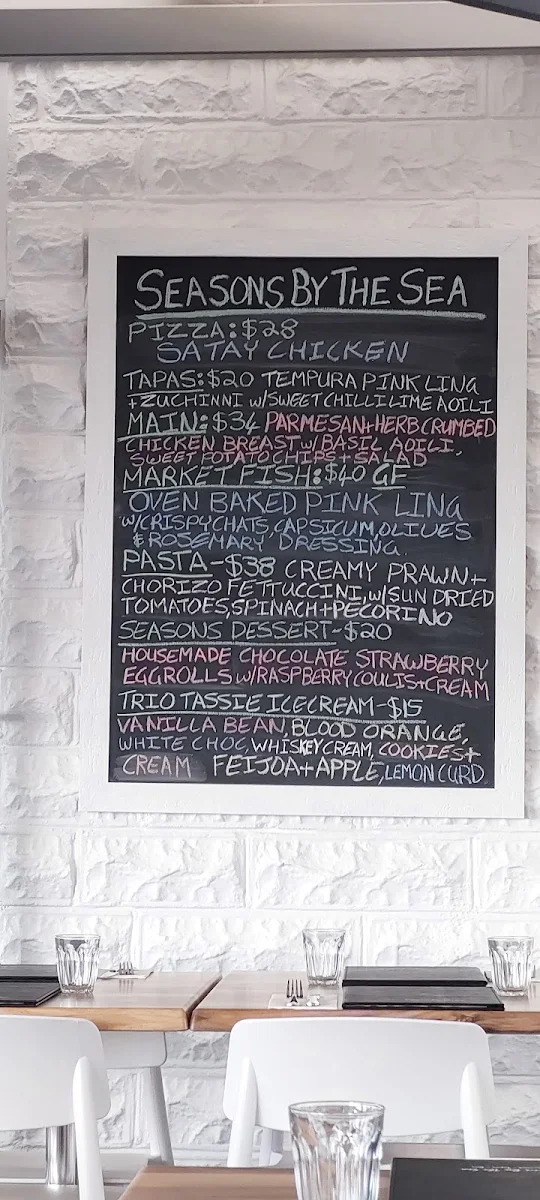 SEASONS BY THE SEA
PIZZA: $28
SATAY CHICKEN
TAPAS: $20 TEMPURA PINK LING
+ ZUCHINNI w/ SWEET CHILLI LIME AOILI
MAIN: $34 PARMESAN+HERB CRUMBED
CHICKEN BREAST w/ BASIL AOILI,
SWEET POTATO CHIPS + SALAD
MARKET FISH: $40 GF
OVEN BAKED PINK LING
w/CRISPY CHATS, CAPSICUM, OLIVES
& ROSEMARY DRESSING.
PASTA-$38 CREAMY PRAWN+
CHORIZO FETTUCCINI, w/ SUN DRIED
TOMATOES, SPINACH+PECORINO
SEASONS DESSERT-$20
HOUSEMADE CHOCOLATE STRAWBERRY
EGGROLLS w/ RASPBERRY COULIS+CREAM
TRIO TASSIE ICECREAM-$15
VANILLA BEAN, BLOOD ORANGE,
WHITE CHOC, WHISKEY CREAM, COOKIES+
CREAM FEIJOA+APPLE, LEMON CURD.